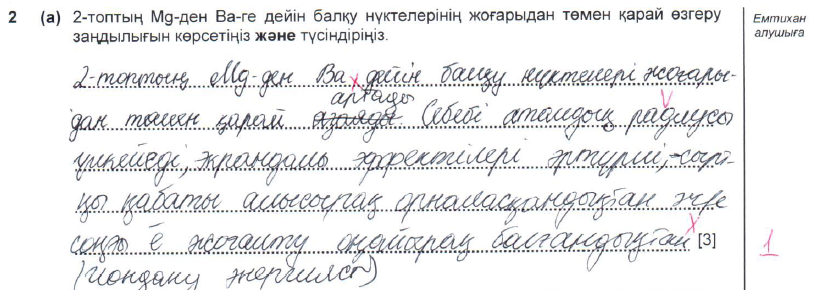 2 (a) 2-топтың Mg-ден Ba-ге дейін балқу нүктелерінің жоғарыдан төмен қарай өзгеру
заңдылығын көрсетіңіз және түсіндіріңіз.
Емтихан
алушыға
2-топтың Mg-ден Ba дейін балқу нүктелері жоғары-
артады
дан төмен қарай азаяды. Себебі атомдық радиусы
үлкейеді, экрандалы эффектілері әртүрлі, сырт-
қы қабаты алысырақ орналасқандықтан және
соңғы ē жоғалту оңайырақ болғандықтан [3]
(иондану энергиясы)
1